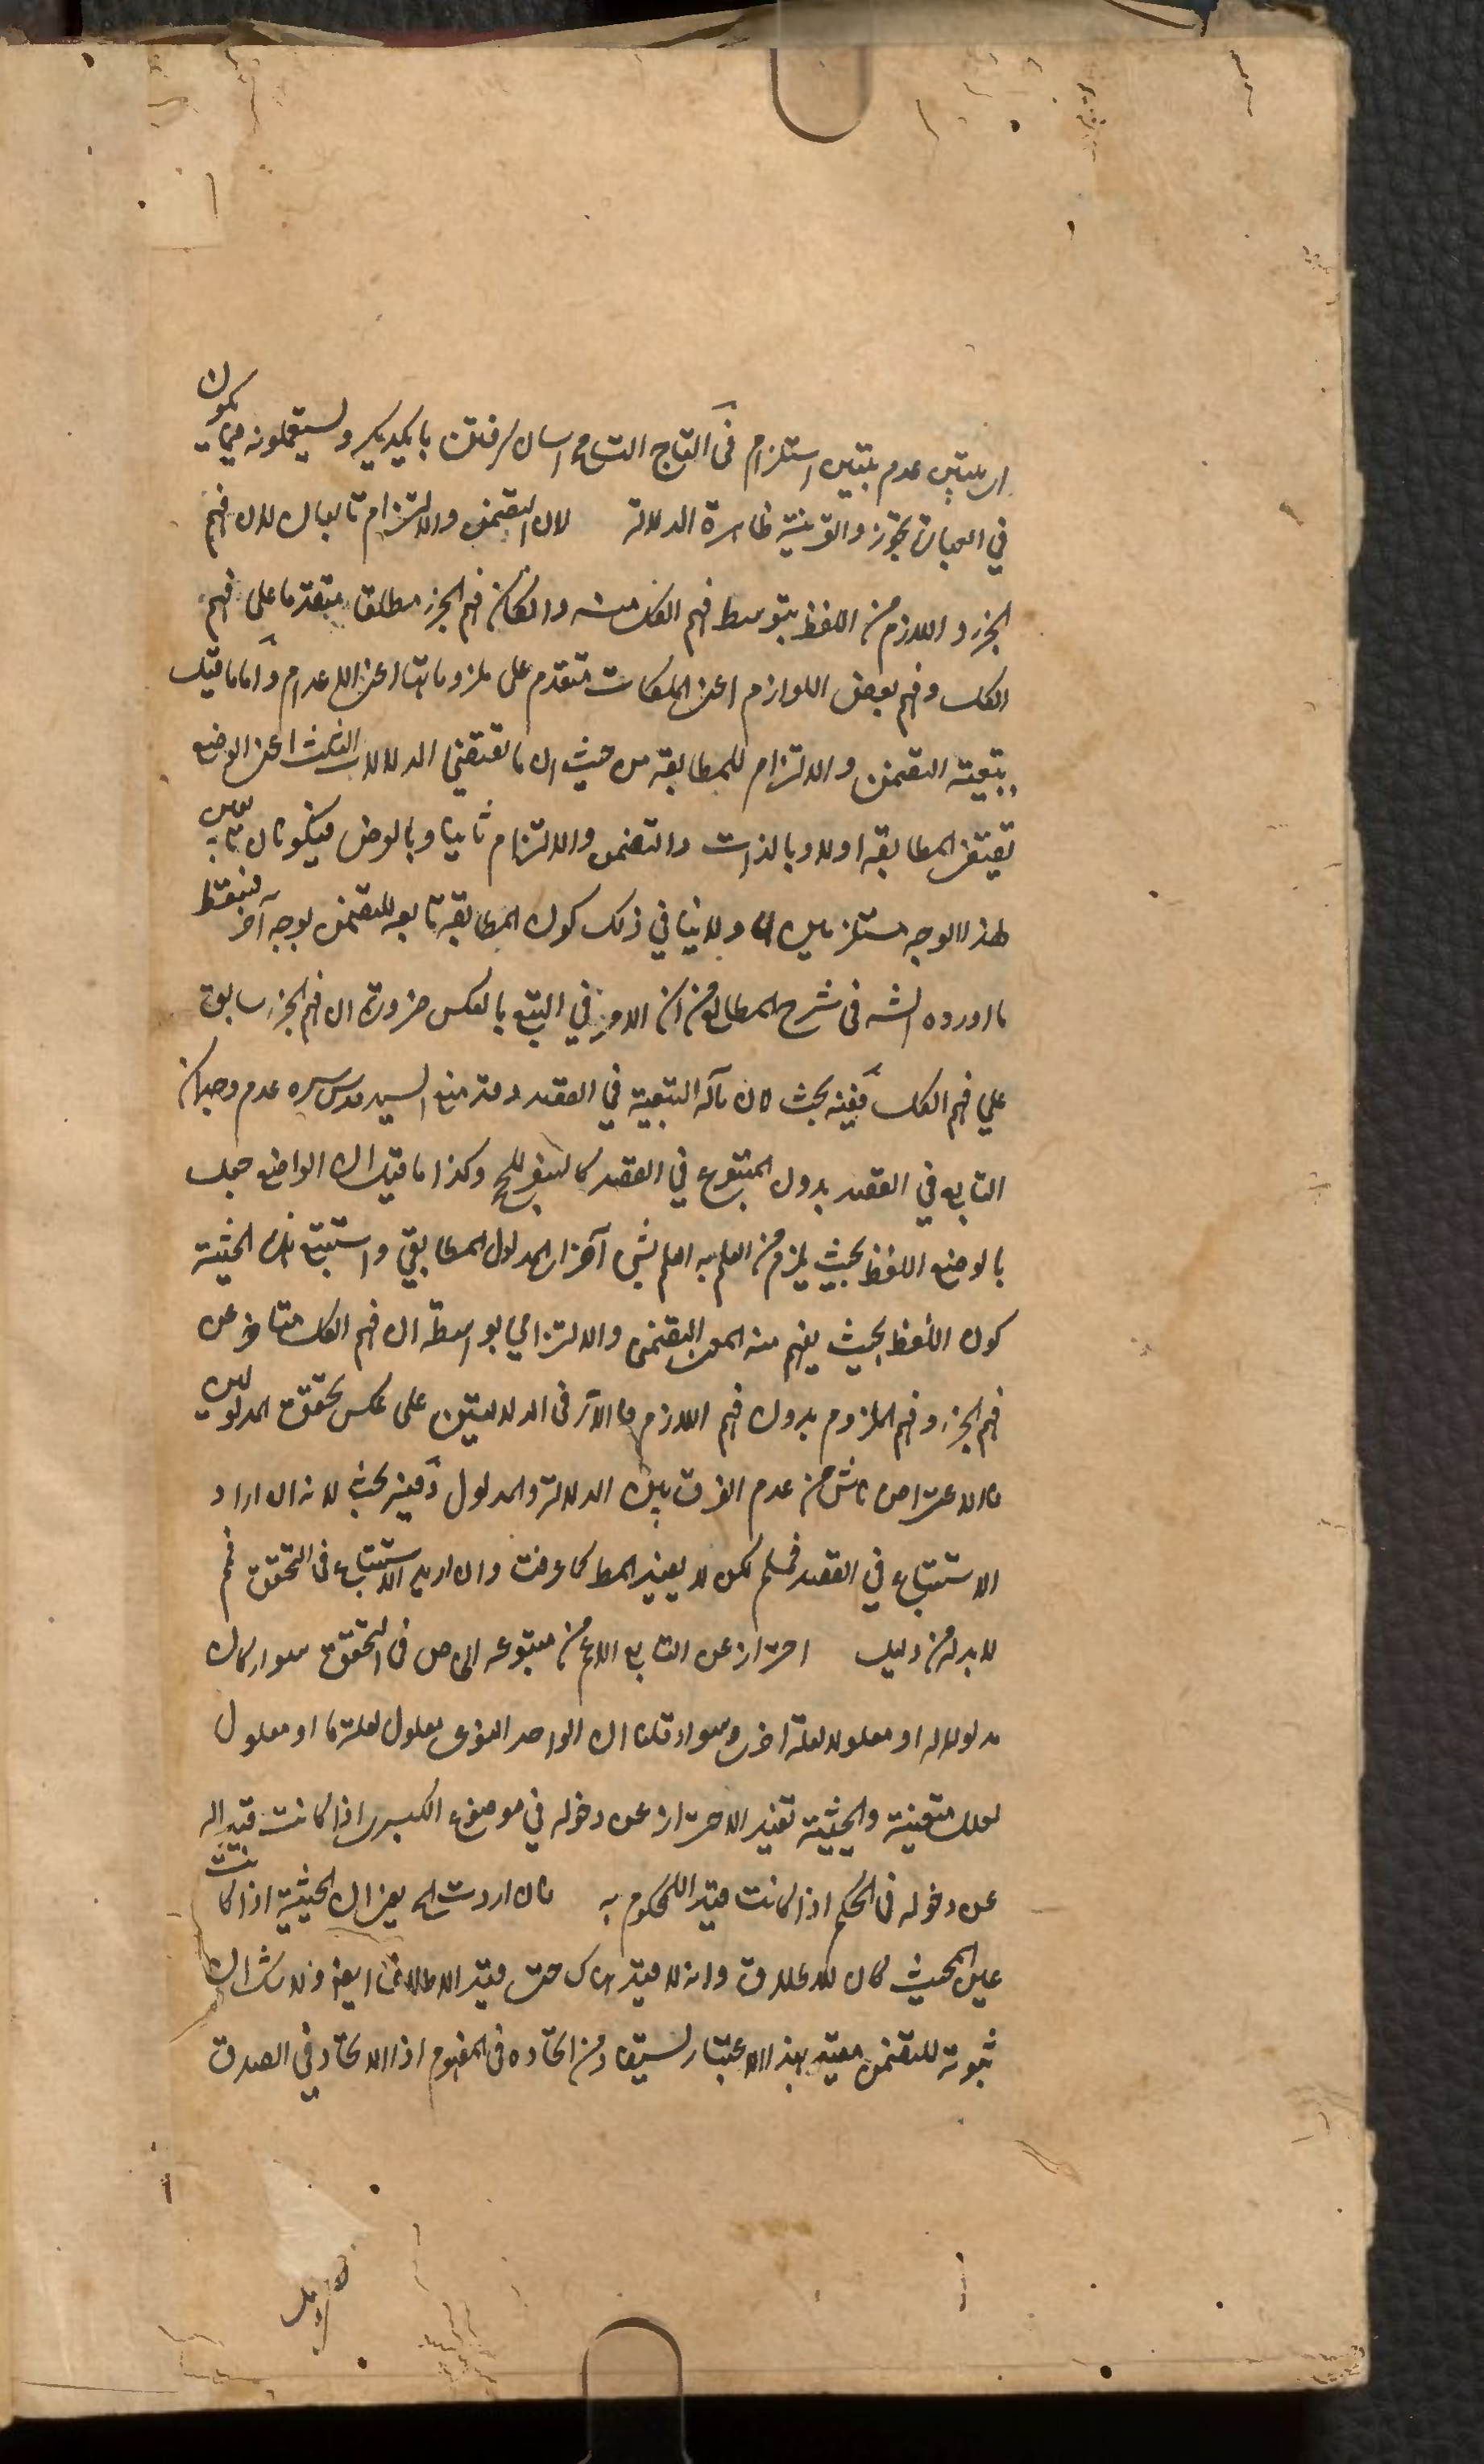 ان تبيين عدم تبيين استلزام في التاج التسامح اسان گرفتن بايكديگر ويستعملونه فيما يكون
في العبارة تجوز والقرينة ظاهرة الدلالة لان التضمن والالتزام تابعان لان فهم
الجزء واللازم من اللفظ بتوسط فهم الكل منه وان كان فهم الجزء مطلقا متقدما على فهم
الكل وفهم بعض اللوازم اعني الملكات متقدم على ملزوماتها اعني الاعدام واما ما قيل
بتبعية التضمن والالتزام للمطابقة من حيث ان ما تقتضي الدلالات الثلث اعني الوضع
تقتضي المطابقة اولا وبالذات والتضمن والالتزام ثانيا وبالعرض فيكونان تابعين
لهذا الوجه مستلزمين لها ولا ينافي ذلك كون المطابقة تابعة للتضمن بوجه آخر فسقط
ما اورده الشه في شرح المطالع من ان الامر في التبع بالعكس ضرورة ان فهم الجزء سابق
علي فهم الكل ففيه بحث لان مآله التبعية في القصد وقد منع السيد قدس سره عدم وجدان
التابع في القصد بدون المتبوع في القصد كالسفر للحج وكذا ما قيل ان الواضع جعل
بالوضع اللفظ بحيث يلزم من العلم به العلم بشي آخر اي المدلول المطابقي واستتبع تلك الحيثية
كون اللفظ بحيث يفهم منه المعنى التضمني والالتزامي بواسطة ان فهم الكل متاخر عن
فهم الجزء وفهم الملزوم بدون فهم اللازم فالامر في الدلالتين على عكس تحقق المدلولين
فالاعتراض ناش من عدم الفرق بين الدلالة والمدلول ففيه بحث لانه ان اراد
الاستتباع في القصد فمسلم لكن لا يفيد المط كما عرفت وان اريد الاستتباع في التحقق فم
لا بد له من دليل احتراز عن التابع الاعم من متبوعه الخاص في التحقق سواء كان
مدلولا له او معلولا لعلة اخرى وسواء قلنا ان الواحد النوعي معلول لعلة ما او معلول
لعلل متعينة والحيثية تفيد الاحتراز عن دخوله في موضوع الكبرى اذا كانت قيدا له
عن دخوله في الحكم اذا كانت قيدا للمحكوم به فان اردت الخ يعني ان الحيثية اذا كانت
عين المحيث كان للاطلاق وانه لا قيد هناك حتى قيد الاطلاق ايض ولا شك ان
ثبوته للتضمن مقيد بهذا الاعتبار يستفاد من اتحاده في المفهوم اذ الاتحاد في الصدق